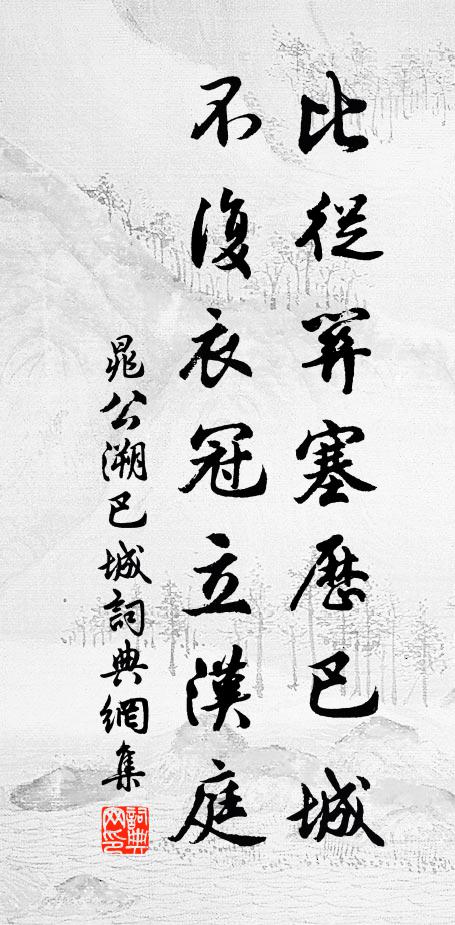 比從塞歷巴城
不復衣冠立漢庭
晁公溯巴城詞典網集
詞典网印